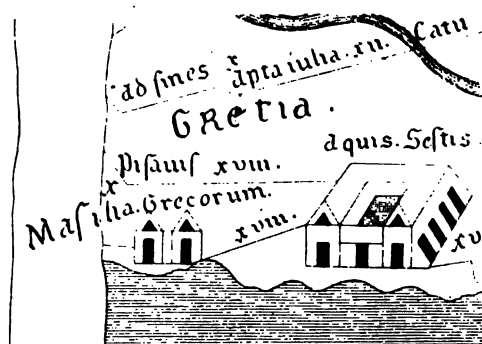 Catu
ad fines x apta iulia. xii.
GReTIA.
aquis. Sestis
pisauis xviii.
x
Masilia. Grecorum.
xviii.
xv